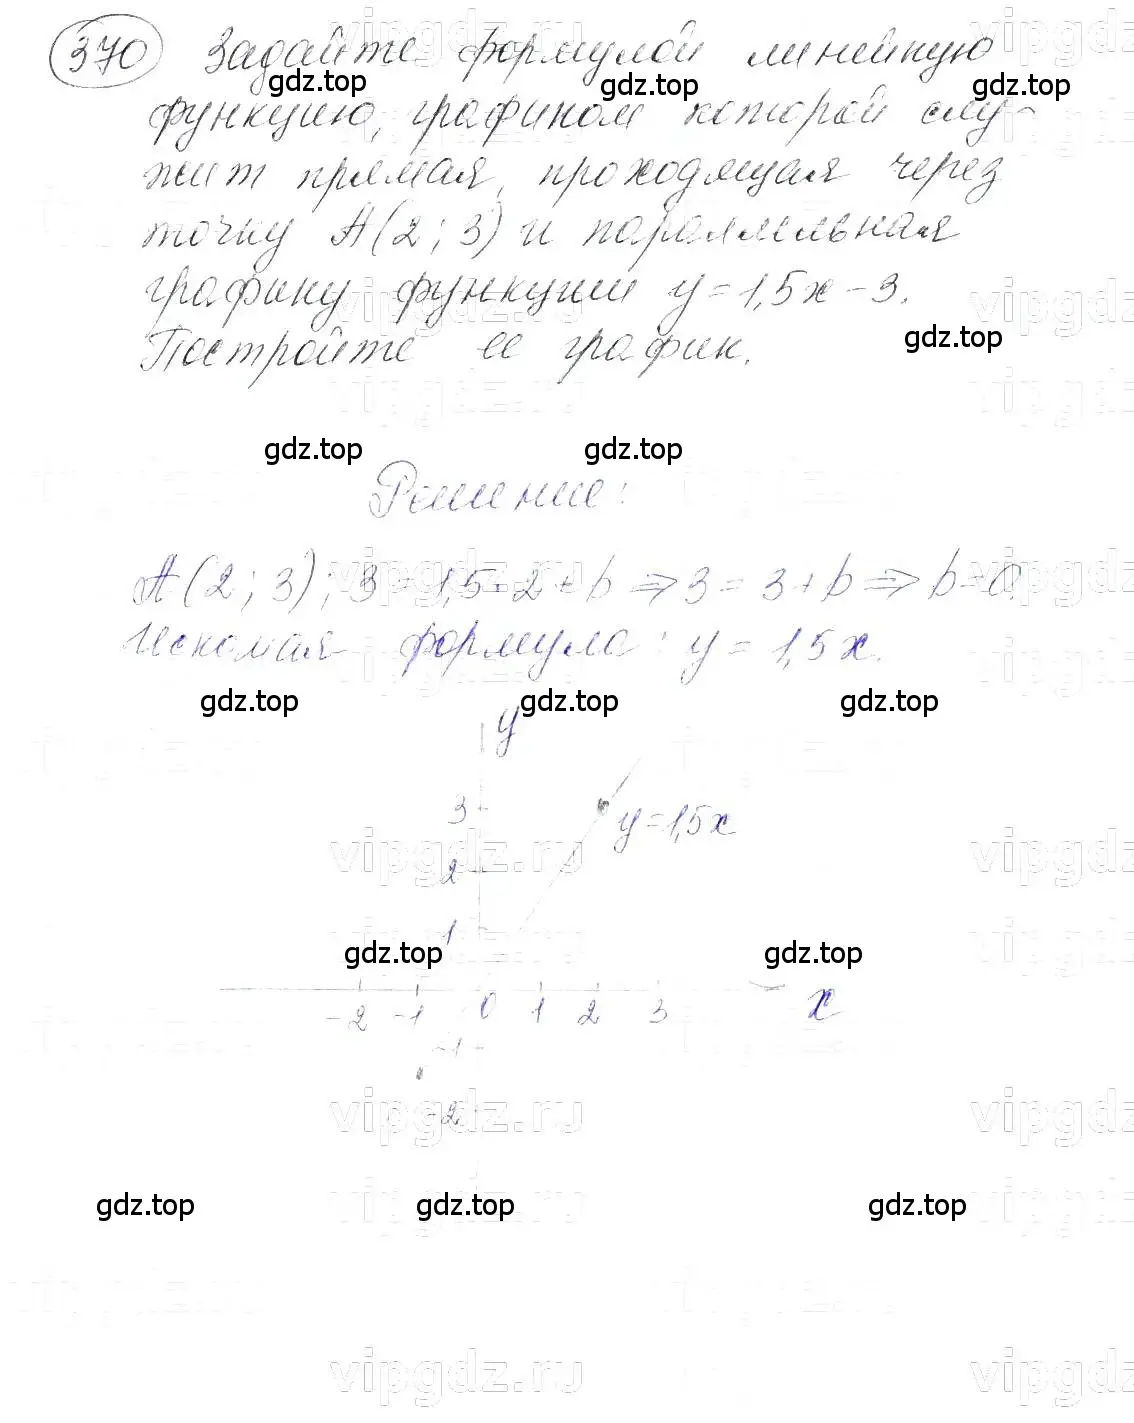 370 Задайте формулой линейную
gdz.top gdz.top gdz.top
функцию, графиком которой слу-
жит прямая, проходящая через
точку А(2; 3) и параллельная
графику функции y = 1,5x - 3.
Постройте ее график.
gdz.top
gdz.top gdz.top
Решение:
А(2; 3); 3 = 1,5 · 2 + b ⇒ 3 = 3 + b ⇒ b = 0.
Искомая формула: y = 1,5x.
gdz.top gdz.top gdz.top
y
3
y = 1,5x
vipgdz.ru vipgdz
2
1
gdz.top gdz.top
-2 -1 0 1 2 3 x
-1
-2
vipgdz.ru vipgdz
gdz.top gdz.top gdz.top
vipgdz.ru vipgdz